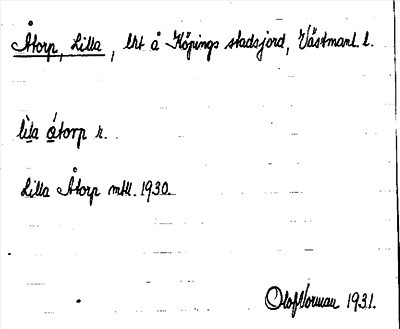 Åtorp, Lilla, lht å Köpings stadsjord, Västmanl. l.
lìla åtorp r.
Lilla Åtorp mtll. 1930.
Olof Norman 1931.